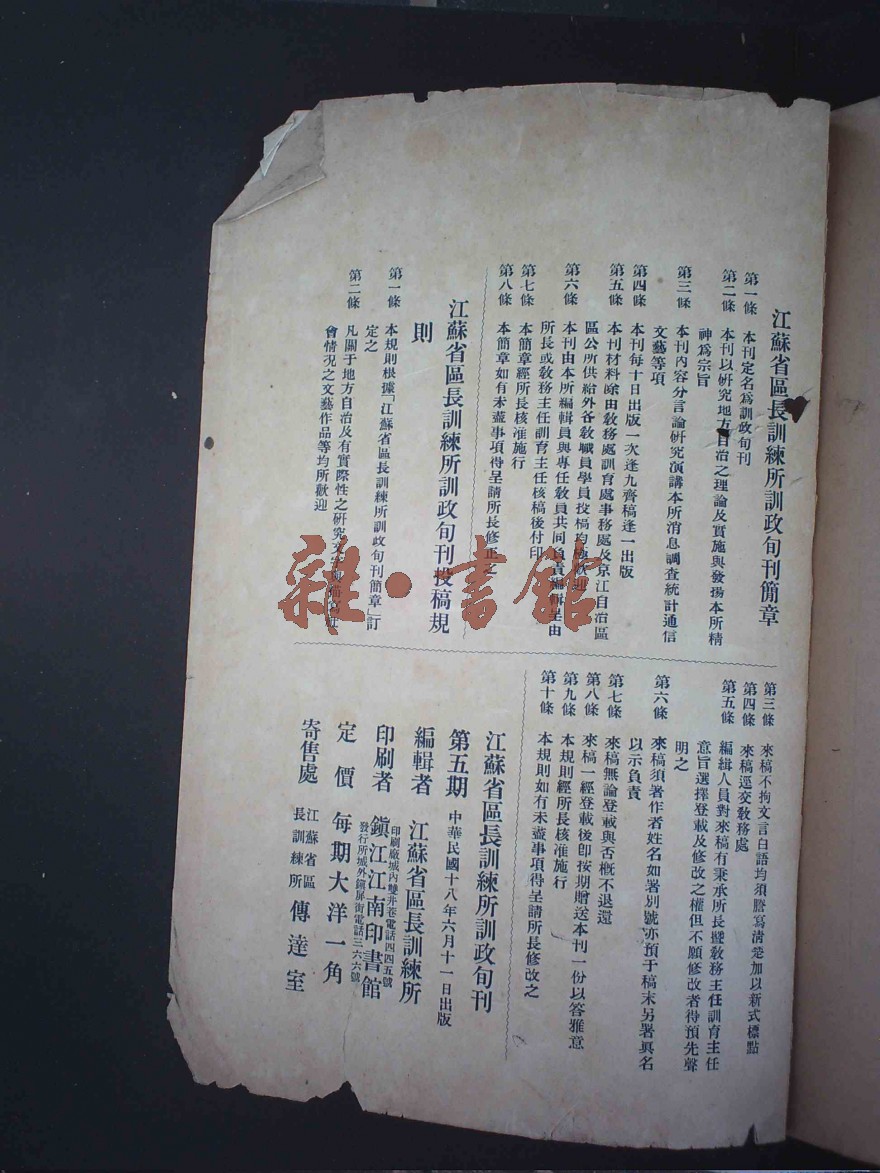 江蘇省區長訓練所訓政旬刊簡章
第一條 本刊定名爲訓政旬刊
第二條 本刊以硏究地方自治之理論及實施與發揚本所精
神爲宗旨
第三條 本刊內容分言論硏究演講本所消息調查統計通信
文藝等項
第四條 本刊每十日出版一次逢九齊稿逢一出版
第五條 本刊材料除由敎務處訓育處事務處及京江自治區
區公所供給外各敎職員學員投稿均極歡迎
第六條 本刊由本所編輯員與專任敎員共同負責編輯呈由
所長或敎務主任訓育主任核稿後付印
第七條 本簡章經所長核准施行
第八條 本簡章如有未盡事項得呈請所長修正之
江蘇省區長訓練所訓政旬刊投稿規
則
第一條 本規則根據「江蘇省區長訓練所訓政旬刊簡章」訂
定之
第二條 凡關于地方自治及有實際性之硏究文字與描寫社
會情況之文藝作品等均所歡迎
第三條 來稿不拘文言白語均須謄寫淸楚加以新式標點
第四條 來稿逕交敎務處
第五條 編輯人員對來稿有秉承所長曁敎務主任訓育主任
意旨選擇登載及修改之權但不願修改者待預先聲
明之
第六條 來稿須署作者姓名如署別號亦預于稿末另署眞名
以示負責
第七條 來稿無論登載與否槪不退還
第八條 來稿一經登載後卽按期贈送本刊一份以答雅意
第九條 本規則經所長核准施行
第十條 本規則如有未盡事項得呈請所長修改之
江蘇省區長訓練所訓政旬刊
第五期 中華民國十八年六月十一日出版
編輯者 江蘇省區長訓練所
印刷者 鎭江江南印書館
印刷廠城內雙井巷電話四四五號
發行所城外銀屏街電話三六六號
定價 每期大洋一角
寄售處 江蘇省區長訓練所傳達室
雜·書館